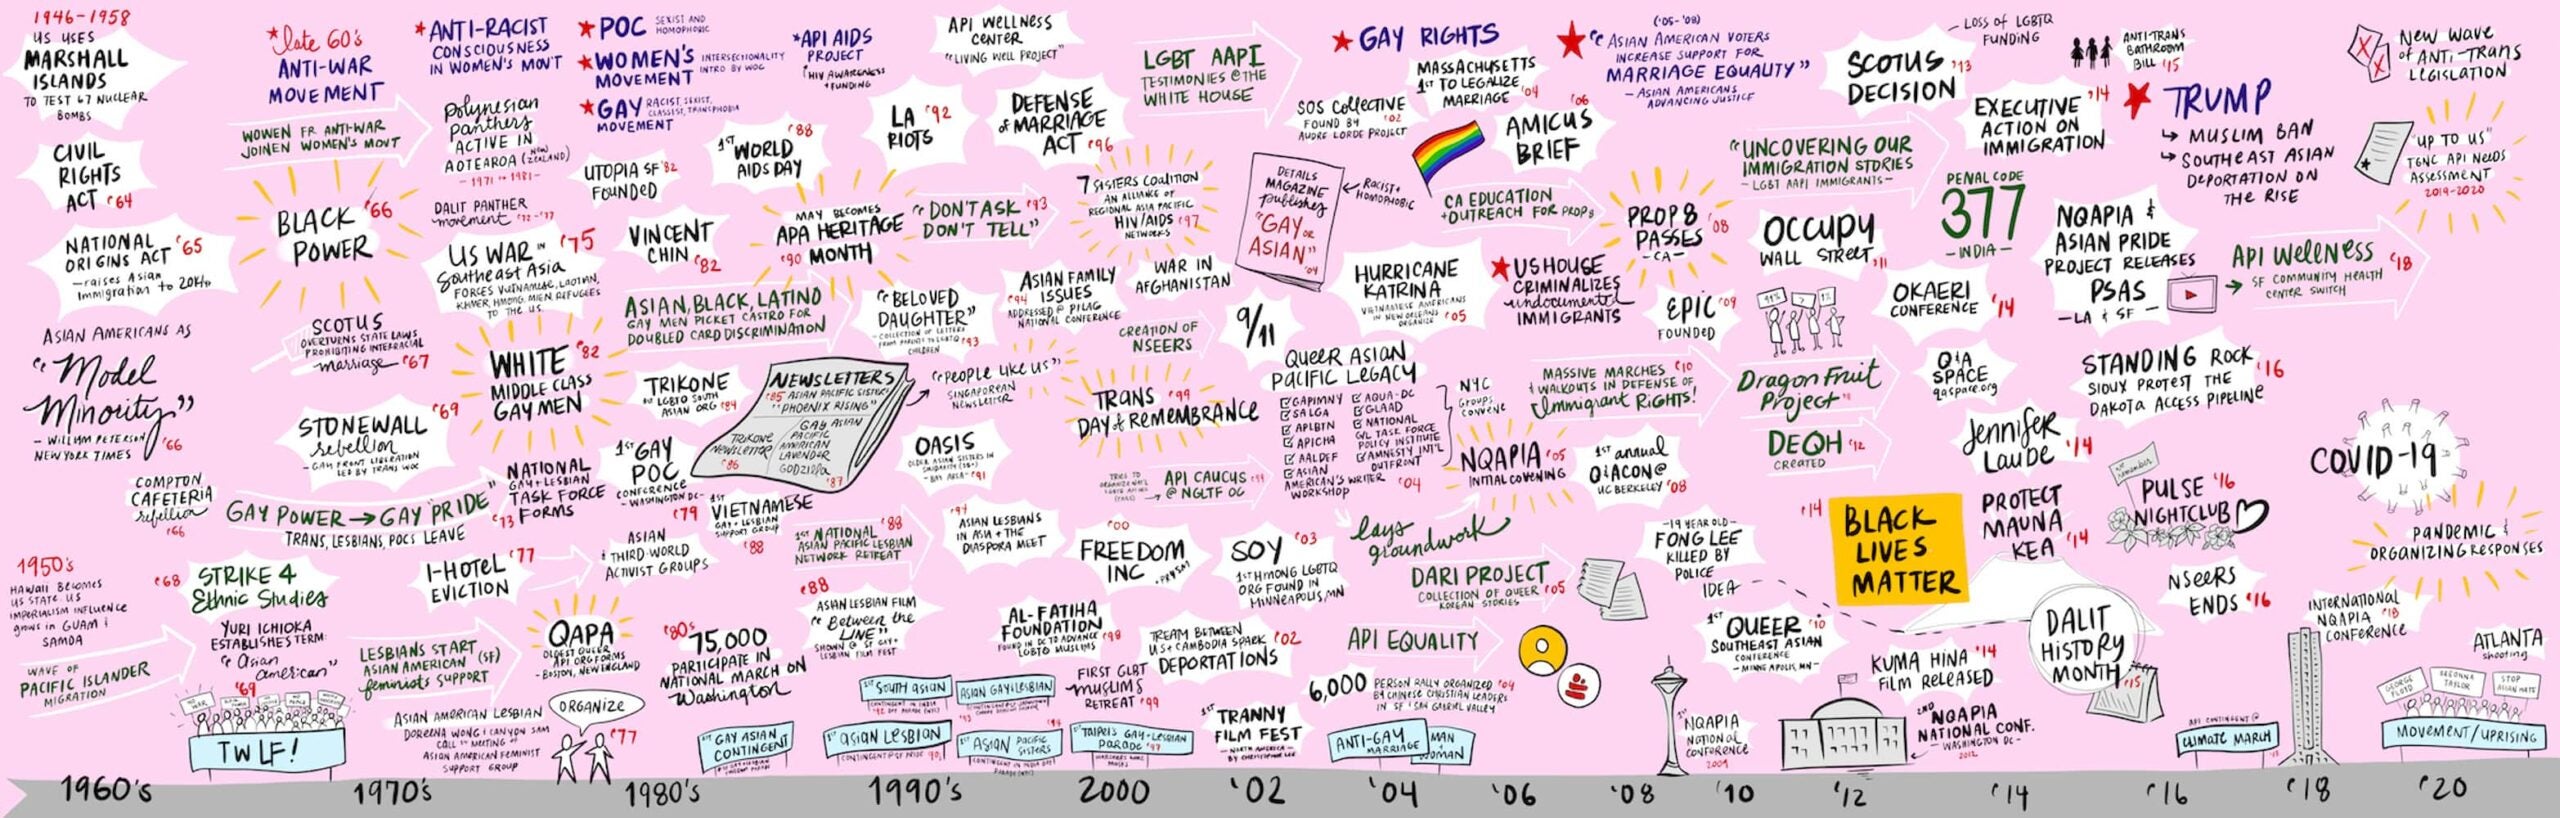 1946-1958
US USES
MARSHALL
ISLANDS
TO TEST 67 NUCLEAR
BOMBS
CIVIL
RIGHTS
ACT '64
NATIONAL
ORIGINS ACT '65
- raises Asian
immigration to 20K+
ASIAN AMERICANS AS
"Model
Minority"
- WILLIAM PETERSON
NEW YORK TIMES '66
COMPTON
CAFETERIA
rebellion
'66
1950's
HAWAII BECOMES
US STATE. US
IMPERIALISM INFLUENCE
grows in GUAM &
SAMOA
WAVE OF
PACIFIC ISLANDER
MIGRATION
*late 60's
ANTI-WAR
MOVEMENT
WOWEN FR ANTI-WAR
JOINEN WOMEN'S MOVT
BLACK '66
POWER
SCOTUS
OVERTURNS STATE LAWS
PROHIBITING INTERRACIAL
marriage '67
STONEWALL '69
rebellion
- GAY FRONT LIBERATION
LED BY TRANS WOC
GAY POWER → GAY "PRIDE"
TRANS, LESBIANS, POCS LEAVE
'68 STRIKE 4
Ethnic Studies
YURI ICHIOKA
ESTABLISHES TERM:
"Asian
American"
'69
NO WAR
TWLF!
*ANTI-RACIST
CONSCIOUSNESS
IN WOMEN'S MOV'T
Polynesian
panthers
ACTIVE IN
AOTEAROA (NEW ZEALAND)
- 1971 to 1981 -
DALIT PANTHER
movement '72-'77
US WAR IN '75
Southeast Asia
FORCES VIETNAMESE, LAOTIAN,
KHMER, HMONG, MIEN REFUGEES
TO THE US.
WHITE '82
MIDDLE CLASS
GAY MEN
NATIONAL
GAY+LESBIAN
TASK FORCE
'73 FORMS
I-HOTEL '77
EVICTION
LESBIANS START
ASIAN AMERICAN (SF)
feminists SUPPORT
ASIAN AMERICAN LESBIAN
DOREENA WONG & CANYON SAM
CALL 1ST MEETING OF
ASIAN AMERICAN FEMINIST
SUPPORT GROUP
QAPA
OLDEST QUEER
API ORG FORMS
- BOSTON, NEW ENGLAND
ORGANIZE
'77
*POC SEXIST AND HOMOPHOBIC
*WOMEN'S MOVEMENT INTERSECTIONALITY INTRO BY WOC
*GAY MOVEMENT RACIST, SEXIST, CLASSIST, TRANSPHOBIA
UTOPIA SF '82
FOUNDED
1ST WORLD '88
AIDS DAY
VINCENT
CHIN '82
MAY BECOMES
APA HERITAGE
'90 MONTH
ASIAN, BLACK, LATINO
GAY MEN PICKET CASTRO FOR
DOUBLED CARD DISCRIMINATION
TRIKONE
1ST LGBTQ SOUTH
ASIAN ORG '84
NEWSLETTERS
'85 ASIAN PACIFIC SISTERS
"PHOENIX RISING"
TRIKONE
NEWSLETTER
'86
GAY ASIAN
PACIFIC
AMERICAN
LAVENDER
GODZILLA
'87
1ST GAY
POC
CONFERENCE
- WASHINGTON DC -
'79
1ST VIETNAMESE
GAY + LESBIAN
SUPPORT GROUP
'88
ASIAN
& THIRD-WORLD
ACTIVIST GROUPS
'80s 75,000
PARTICIPATE IN
NATIONAL MARCH ON
Washington
1ST GAY ASIAN
CONTINGENT
*API AIDS
PROJECT
HIV AWARENESS
+ FUNDING
LA '92
RIOTS
"DON'T ASK '93
DON'T TELL"
"BELOVED
DAUGHTER"
- COLLECTION OF LETTERS
FROM PARENTS TO LGBTQ
CHILDREN '93
"PEOPLE LIKE US"
SINGAPOREAN
NEWSLETTER
OASIS
OLDER ASIAN SISTERS IN
SOLIDARITY (35+)
- BAY AREA - '91
1ST NATIONAL '88
ASIAN PACIFIC LESBIAN
NETWORK RETREAT
'88
ASIAN LESBIAN FILM
"Between the
LINE"
SHOWN @ SF GAY+
LESBIAN FILM FEST
1ST SOUTH ASIAN
1ST ASIAN LESBIAN
ASIAN GAY & LESBIAN
1ST ASIAN PACIFIC
SISTERS
API WELLNESS
CENTER
"LIVING WELL PROJECT"
DEFENSE
of MARRIAGE
ACT '96
7 SISTERS COALITION
AN ALLIANCE OF
REGIONAL ASIA PACIFIC
HIV/AIDS '97
NETWORKS
ASIAN FAMILY
ISSUES
'94 ADDRESSED @ PFLAG
NATIONAL CONFERENCE
TRANS '99
DAY of REMEMBRANCE
ASIAN LESBIANS
IN ASIA + THE
DIASPORA MEET
'00
FREEDOM
INC
+ PRYSM
AL-FATIHA
FOUNDATION
FOUND IN DC TO ADVANCE '98
LGBTQ MUSLIMS
FIRST GLBT
MUSLIMS
RETREAT '99
1ST TAIPEI'S GAY+LESBIAN
PARADE '97
LGBT AAPI
TESTIMONIES @ THE
WHITE HOUSE
WAR IN
AFGHANISTAN
CREATION OF
NSEERS
9/11
API CAUCUS
@ NGLTF OC
SOY '03
1ST HMONG LGBTQ
ORG FOUND IN
MINNEAPOLIS, MN
TREATY BETWEEN
US + CAMBODIA SPARK '02
DEPORTATIONS
1ST TRANNY
FILM FEST
- NORTH AMERICA -
BY CHRISTOPHER LEE
*GAY RIGHTS
MASSACHUSETTS
1ST TO LEGALIZE
MARRIAGE '04
SOS COLLECTIVE
FOUND BY '02
AUDRE LORDE PROJECT
DETAILS
MAGAZINE
publishes
"GAY OR
ASIAN"
'04
RACIST+
HOMOPHOBIC
HURRICANE
KATRINA
VIETNAMESE AMERICANS
IN NEW ORLEANS
ORGANIZE '05
QUEER ASIAN
PACIFIC LEGACY
GAPIMNY
SALGA
APLBTN
APICHA
AALDEF
ASIAN
AMERICAN'S WRITER
WORKSHOP
AQUA-DC
GLAAD
NATIONAL
G/L TASK FORCE
POLICY INSTITUTE
AMNESTY INT'L
OUTFRONT
'04
NYC
GROUPS
CONVENE
lays
groundwork
DARI PROJECT
COLLECTION OF QUEER '05
KOREAN STORIES
API EQUALITY
6,000 PERSON RALLY ORGANIZED '04
BY CHINESE CHRISTIAN LEADERS
IN SF & SAN GABRIEL VALLEY
ANTI-GAY
MARRIAGE
MAN
WOMAN
*('05-'08)
"ASIAN AMERICAN VOTERS
INCREASE SUPPORT FOR
MARRIAGE EQUALITY"
- ASIAN AMERICANS
ADVANCING JUSTICE
'06
AMICUS
BRIEF
CA EDUCATION
+ OUTREACH FOR PROP 8
PROP 8
PASSES '08
- CA -
*US HOUSE
CRIMINALIZES
undocumented
IMMIGRANTS
EPIC '09
FOUNDED
MASSIVE MARCHES '10
& WALKOUTS IN DEFENSE OF
Immigrant RIGHTS!
NQAPIA '05
INITIAL COVENING
1ST annual
Q&ACON @
UC BERKELEY '08
- 19 YEAR OLD -
FONG LEE
KILLED BY
POLICE
IDEA
1ST QUEER '10
SOUTHEAST ASIAN
CONFERENCE
- MINNEAPOLIS, MN -
1ST NQAPIA
NATIONAL
CONFERENCE
2009
SCOTUS '13
DECISION
- LOSS OF LGBTQ
FUNDING
"UNCOVERING OUR
IMMIGRATION STORIES
- LGBT AAPI IMMIGRANTS -
OCCUPY
WALL STREET '11
99% > 1%
Dragon Fruit
Project
DEQH '12
CREATED
'14
BLACK
LIVES
MATTER
KUMA HINA '14
FILM RELEASED
2ND NQAPIA
NATIONAL CONF.
- WASHINGTON DC -
2012
EXECUTIVE '14
ACTION ON
IMMIGRATION
PENAL CODE
377
- INDIA -
OKAERI
CONFERENCE '14
Q&A
SPACE
qaspace.org
Jennifer
Laude '14
PROTECT
MAUNA
KEA '14
DALIT
HISTORY
MONTH
'15
ANTI-TRANS
BATHROOM
BILL '15
*TRUMP
↳ MUSLIM BAN
↳ SOUTHEAST ASIAN
DEPORTATION ON
THE RISE
NQAPIA &
ASIAN PRIDE
PROJECT RELEASES
PSAS
- LA & SF -
API WELLNESS '18
→ SF COMMUNITY HEALTH
CENTER SWITCH
STANDING ROCK '16
SIOUX PROTEST THE
DAKOTA ACCESS PIPELINE
remember
PULSE '16
NIGHTCLUB
NSEERS
ENDS '16
API CONTINGENT @
CLIMATE MARCH
INTERNATIONAL
NQAPIA '18
CONFERENCE
NEW WAVE
of ANTI-TRANS
LEGISLATION
"UP TO US"
TGNC API NEEDS
ASSESSMENT
2019-2020
COVID-19
PANDEMIC &
ORGANIZING RESPONSES
ATLANTA
shooting
GEORGE
FLOYD
BREONNA
TAYLOR
STOP
ASIAN HATE
MOVEMENT/UPRISING
1960's 1970's 1980's 1990's 2000 '02 '04 '06 '08 '10 '12 '14 '16 '18 '20